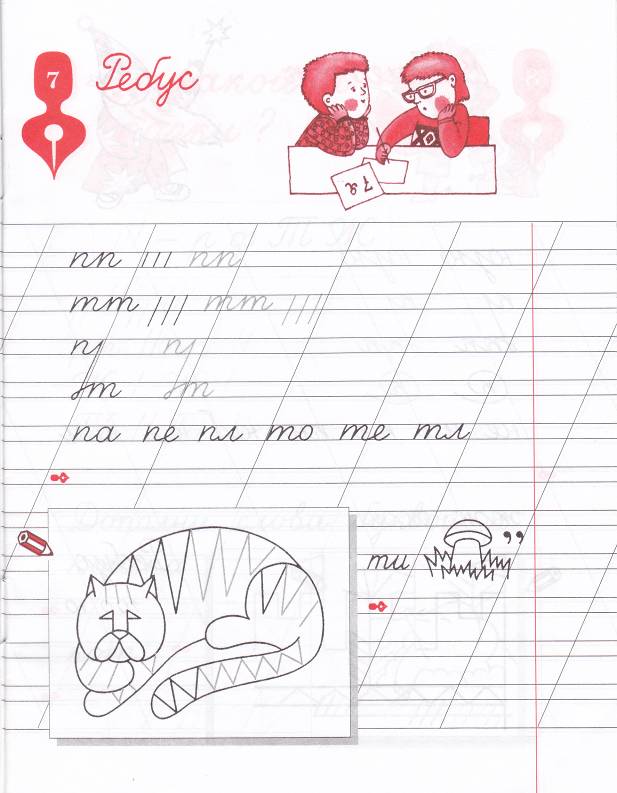 7
Ребус
7я
пп ııı пп
тт /// тт ///
пı пı
эт эт
па пе пл то те тл
ти ,,